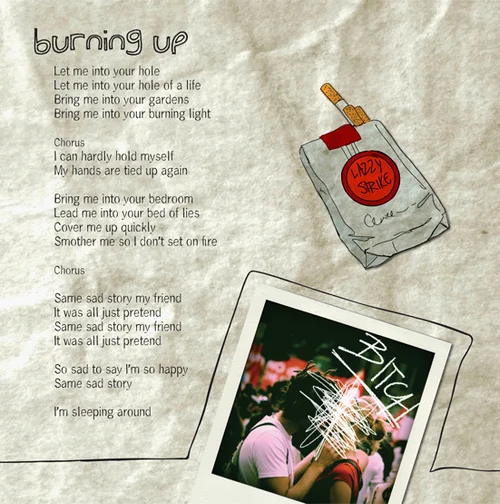 burning up
Let me into your hole
Let me into your hole of a life
Bring me into your gardens
Bring me into your burning light
Chorus
I can hardly hold myself
My hands are tied up again
Bring me into your bedroom
Lead me into your bed of lies
Cover me up quickly
Smother me so I don't set on fire
Chorus
Same sad story my friend
It was all just pretend
Same sad story my friend
It was all just pretend
So sad to say I'm so happy
Same sad story
I'm sleeping around
LAZZY
STRIKE
Cancer
BITCH